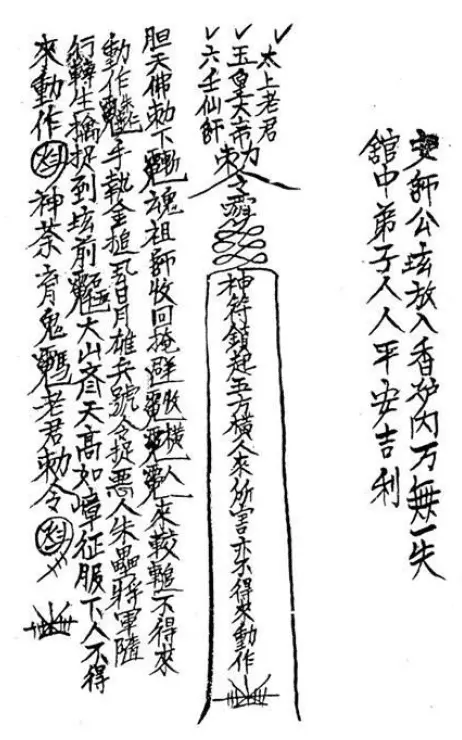 師公坛放入香炉内万無一失
舘中弟子人人平安吉利
太上老君
玉皇大帝
六壬仙師
勅令
神符鎮起五方橫人來所害亦不得來動作
胆天佛勅下魂祖師收回掩收橫人來較不得來
動作手執金搥日月雄兵號令捉悪人朱將軍隨
行轉生擒捉到坛前大山齊天高如嶂征服下人不得
來動作神荼鬼老君勅令